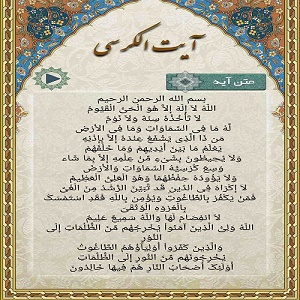 آیت الکرسی
متن آیه
بسم الله الرحمن الرحیم
اللّهُ لاَ إِلَهَ إِلاَّ هُوَ الْحَيُّ الْقَيُّومُ
لاَ تَأْخُذُهُ سِنَةٌ وَلاَ نَوْمٌ
لَّهُ مَا فِي السَّمَاوَاتِ وَمَا فِي الأَرْضِ
مَن ذَا الَّذِي يَشْفَعُ عِنْدَهُ إِلاَّ بِإِذْنِهِ
يَعْلَمُ مَا بَيْنَ أَيْدِيهِمْ وَمَا خَلْفَهُمْ
وَلاَ يُحِيطُونَ بِشَيْءٍ مِّنْ عِلْمِهِ إِلاَّ بِمَا شَاء
وَسِعَ كُرْسِيُّهُ السَّمَاوَاتِ وَالأَرْضَ
وَلاَ يَؤُودُهُ حِفْظُهُمَا وَهُوَ الْعَلِيُّ الْعَظِيمُ
لاَ إِكْرَاهَ فِي الدِّينِ قَد تَّبَيَّنَ الرُّشْدُ مِنَ الْغَيِّ
فَمَنْ يَكْفُرْ بِالطَّاغُوتِ وَيُؤْمِن بِاللّهِ فَقَدِ اسْتَمْسَكَ
بِالْعُرْوَةِ الْوُثْقَىَ
لاَ انفِصَامَ لَهَا وَاللّهُ سَمِيعٌ عَلِيمٌ
اللّهُ وَلِيُّ الَّذِينَ آمَنُواْ يُخْرِجُهُم مِّنَ الظُّلُمَاتِ إِلَى
النُّوُرِ
وَالَّذِينَ كَفَرُواْ أَوْلِيَآؤُهُمُ الطَّاغُوتُ
يُخْرِجُونَهُم مِّنَ النُّورِ إِلَى الظُّلُمَاتِ
أُوْلَئِكَ أَصْحَابُ النَّارِ هُمْ فِيهَا خَالِدُونَ